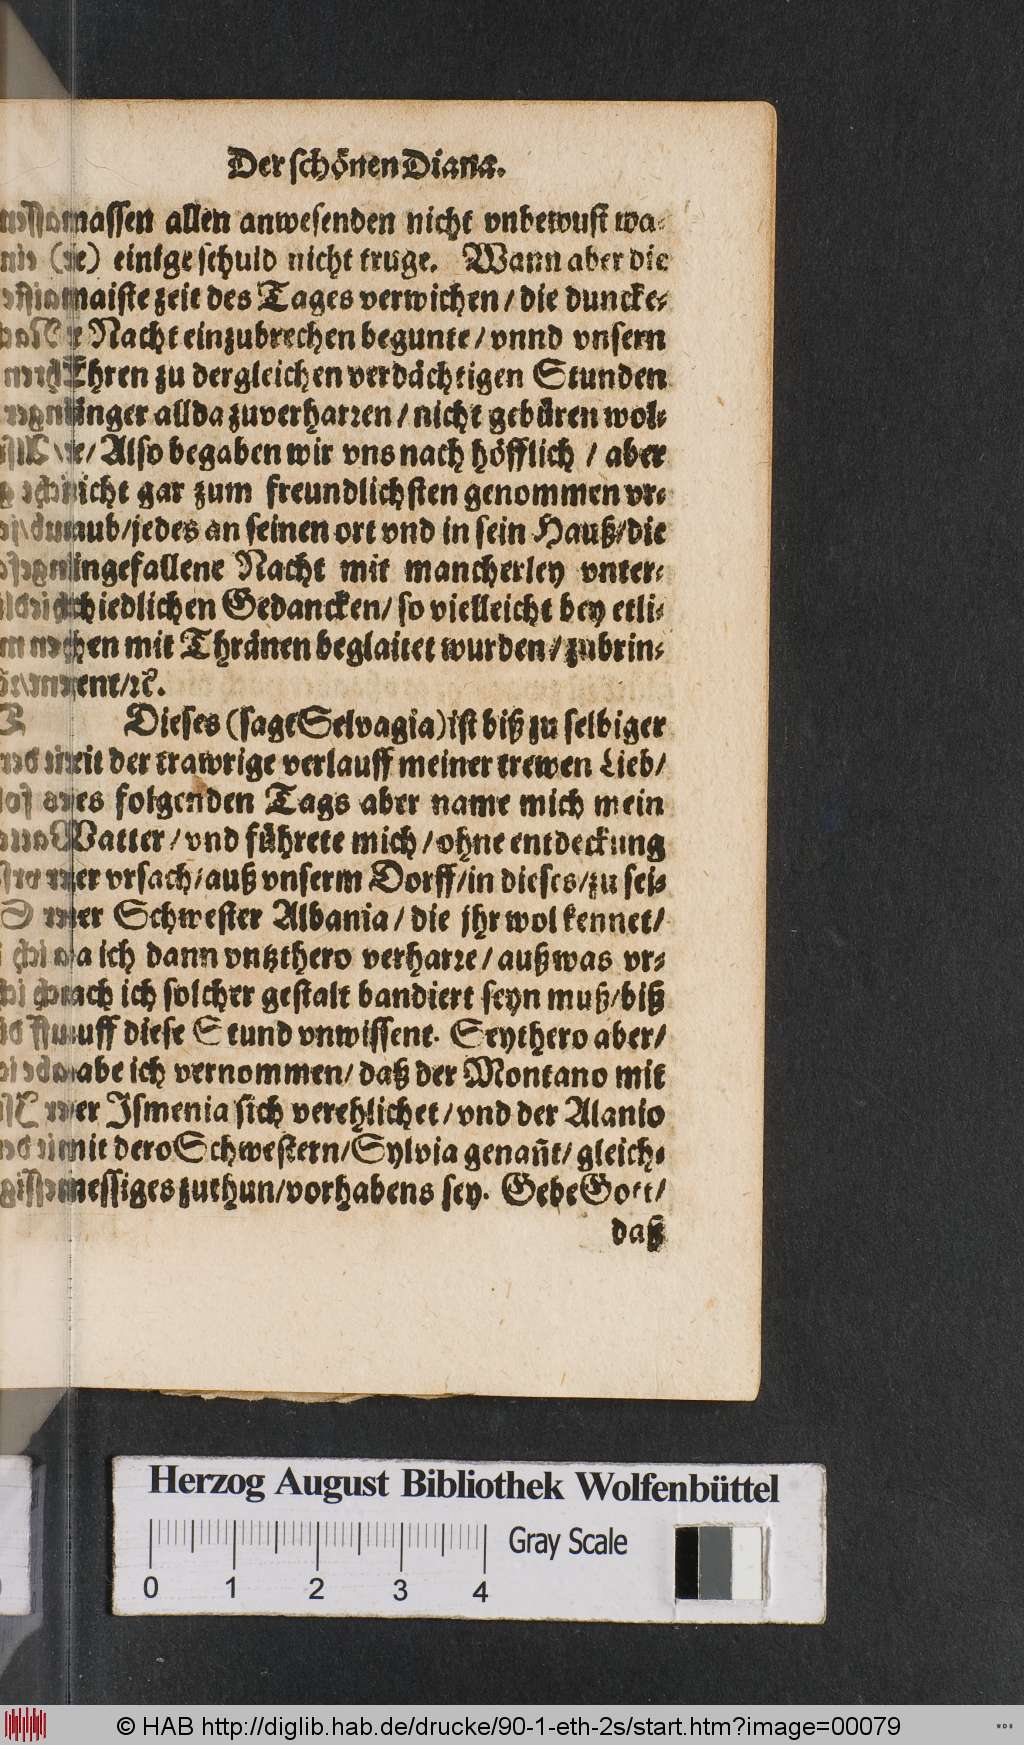 Der schönen Diana.
massen allen anwesenden nicht vnbewust wa-
re) einige schuld nicht truge. Wann aber die
maiste zeit des Tages verwichen / die duncke-
le Nacht einzubrechen begunte / vnnd vnsern
Ehren zu dergleichen verdächtigen Stunden
länger allda zuverharren / nicht gebüren wol-
te / Also begaben wir vns nach höfflich / aber
nicht gar zum freundlichsten genommen vr-
laub/jedes an seinen ort vnd in sein Hauß/die
eingefallene Nacht mit mancherley vnter-
schiedlichen Gedancken/ so vielleicht bey etli-
chen mit Thränen beglaitet wurden / zubrin-
gent/ꝛc.
Dieses (sagt Selvagia) ist biß zu selbiger
zeit der trawrige verlauff meiner trewen Lieb/
des folgenden Tags aber name mich mein
Vatter / vnd führete mich / ohne entdeckung
der vrsach/ auß vnserm Dorff/in dieses/zu sei-
ner Schwester Albania / die jhr wol kennet/
da ich dann vntzthero verharre / auß was vr-
sach ich solcher gestalt bandiert seyn muß/biß
auff diese Stund vnwissent. Seythero aber/
habe ich vernommen/ daß der Montano mit
der Ismenia sich verehlichet / vnd der Alanio
mit dero Schwestern/Sylvia genañt/ gleich-
messiges zuthun/vorhabens sey. Gebe Gott/
daß
Herzog August Bibliothek Wolfenbüttel
0 1 2 3 4
Gray Scale
© HAB http://diglib.hab.de/drucke/90-1-eth-2s/start.htm?image=00079